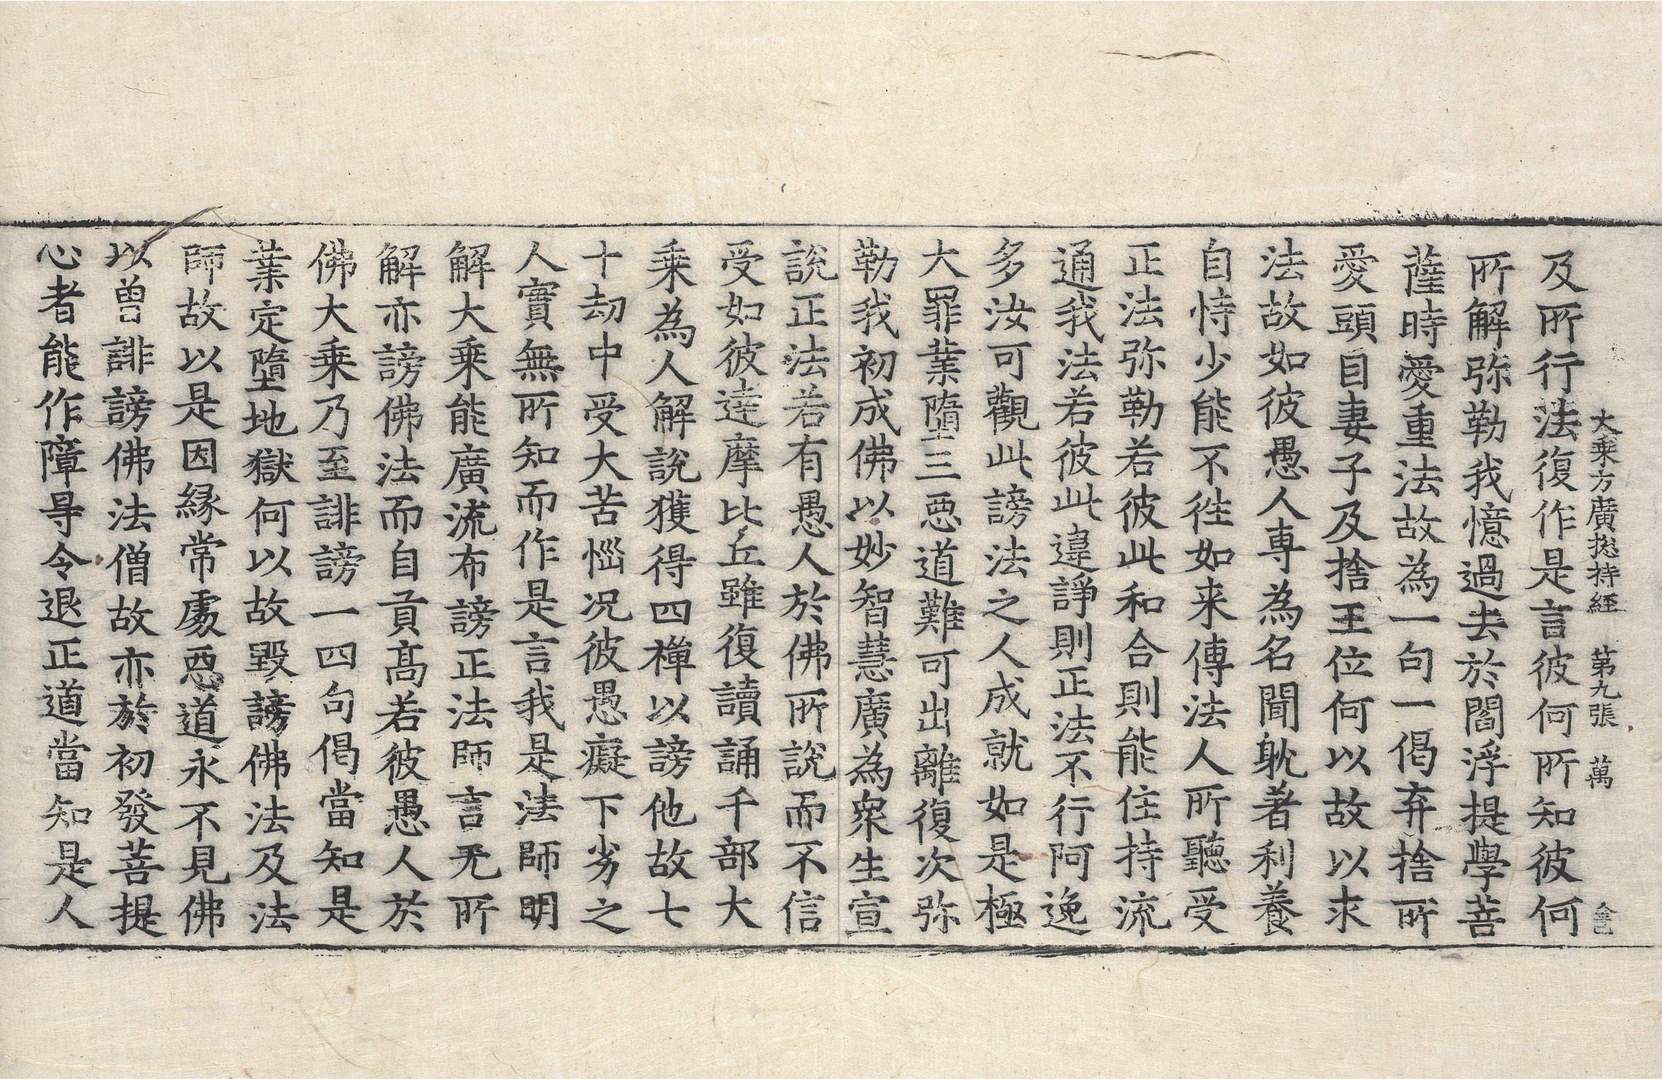 大乗方廣揔持経 第九張 萬
及所行法復作是言彼何所知彼何
所解弥勒我憶過去於閻浮提學菩
薩時愛重法故為一句一偈弃捨所
愛頭目妻子及捨王位何以故以求
法故如彼愚人専為名聞躭著利養
自恃少能不徃如来傳法人所聽受
正法弥勒若彼此和合則能住持流
通我法若彼此違諍則正法不行阿逸
多汝可觀此謗法之人成就如是極
大罪業墮三惡道難可出離復次弥
勒我初成佛以妙智慧廣為衆生宣
說正法若有愚人於佛所說而不信
受如彼達摩比丘雖復讀誦千部大
乗為人解說獲得四禪以謗他故七
十劫中受大苦惱况彼愚癡下劣之
人實無所知而作是言我是法師明
解大乗能廣流布謗正法師言无所
解亦謗佛法而自貢髙若彼愚人於
佛大乗乃至誹謗一四句偈當知是
業定墮地獄何以故毀謗佛法及法
師故以是因緣常處惡道永不見佛
以曽誹謗佛法僧故亦於初發菩提
心者能作障㝵令退正道當知是人